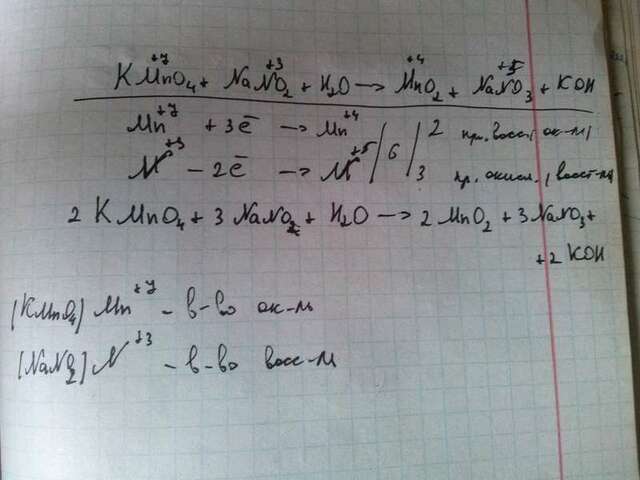 +7 +3 +4 +5
KMnO4 + NaNO2 + H2O → MnO2 + NaNO3 + KOH
Mn+7 + 3ē → Mn+4 | 6 | 2 пр. восст. ( ок-ль)
N+3 − 2ē → N+5 | | 3 пр. окисл., (восст-ль)
2 KMnO4 + 3 NaNO2 + H2O → 2 MnO2 + 3 NaNO3 +
+ 2 KOH
(KMnO4) Mn+7 – в-во ок-ль
(NaNO2) N+3 – в-во восс-ль